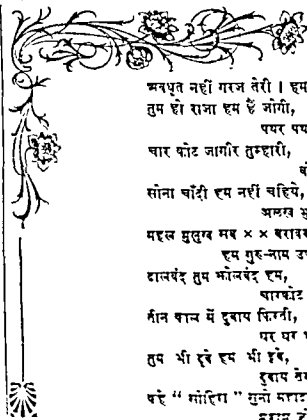 अवधूत नहीं गरज तेरी । हम
तुम हो राजा हम हैं जोगी,
पयर पय
चार कोट जागीर तुम्हारी,
सोना चाँदी हम नहीं चहिये,
अलख मु
महल मुलुख सब × × बराबर
हम गुरु-नाम उ
ढालबंद तुम झोलबंद हम,
चारकोट
तीन काल में दुवाय फिरती,
घर घर
तुम भी डूबे हम भी डूबे,
दुवाय
कहे “ मोहिरा ” सुनो महारा